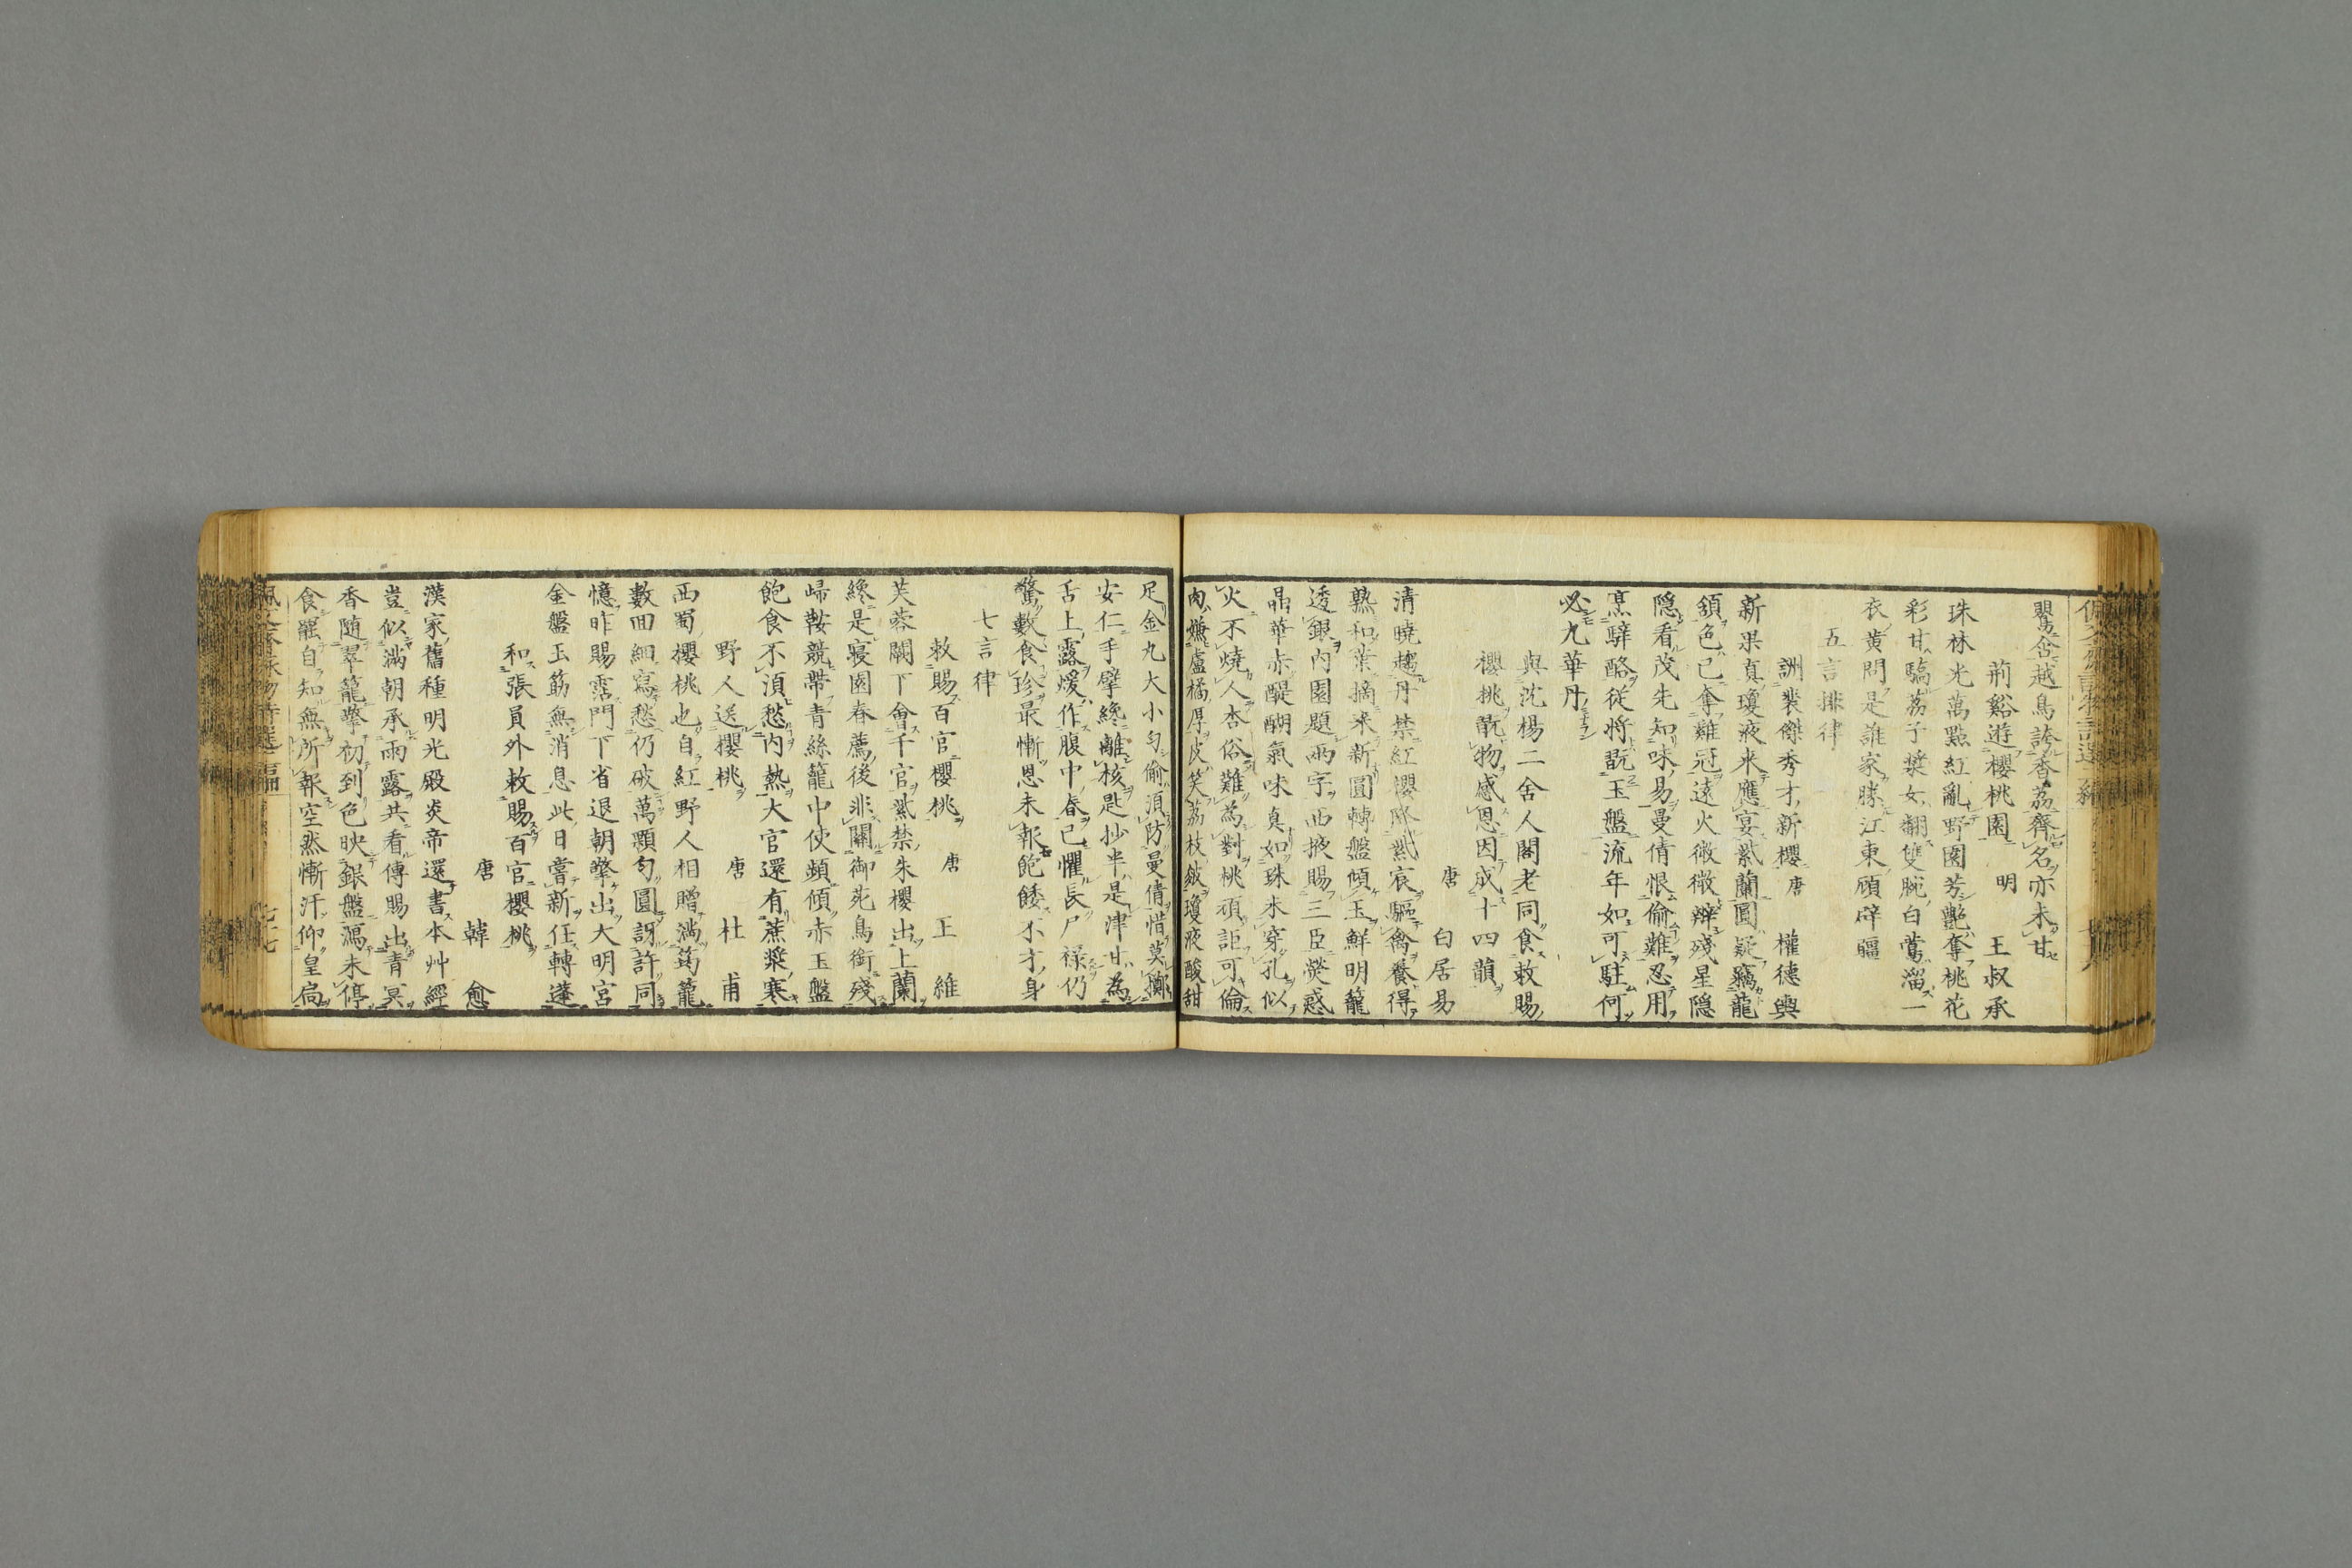 嬰含越鳥誇香荔齊名亦未甘
荊谿遊櫻桃園 明 王叔承
珠林光萬點紅亂野園芳艷奪桃花
彩甘驕荔子漿女翻雙腕白鶯溜一
衣黃問是誰家勝江東顧辟疆
五言排律
訓裴傑秀才新櫻 唐 權德輿
新果真瓊液來應宴紫蘭圓疑竊龍
頷色已奪雞冠遠火微微辨殘星隱
隱看茂先知味易曼倩恨偷難忍用
烹騂酪從將翫玉盤流年如可駐何
必九華丹
與沈楊二舍人閣老同食敕賜
櫻桃翫物感恩因成十四韻
唐 白居易
清曉趨丹禁紅櫻降紫宸驅禽養得
熟和葉摘來新圓轉盤傾玉鮮明籠
透銀內園題兩字西掖賜三臣熒惑
晶華赤醍醐氣味真如珠未穿孔似
火不燒人杏俗難為對桃頑詎可倫
肉嫌盧橘厚皮笑荔枝皴瓊液酸甜
足金丸大小勻偷須防曼倩惜莫擲
安仁手擘纔離核匙抄半是津甘為
舌上露煖作腹中春已懼長尸祿仍
驚數食珍最慚恩未報飽餧不才身
七言律
敕賜百官櫻桃 唐 王維
芙蓉闕下會千官紫禁朱櫻出上蘭
纔是寢園春薦後非關御苑鳥銜殘
歸鞍競帶青絲籠中使頻傾赤玉盤
飽食不須愁內熱大官還有蔗漿寒
野人送櫻桃 唐 杜甫
西蜀櫻桃也自紅野人相贈滿筠籠
數回細寫愁仍破萬顆勻圓訝許同
憶昨賜霑門下省退朝擎出大明宮
金盤玉筯無消息此日嘗新任轉蓬
和張員外敕賜百官櫻桃
唐 韓愈
漢家舊種明光殿炎帝還書本艸經
豈似滿朝承雨露共看傳賜出青冥
香隨翠籠擎初到色映銀盤瀉未停
食罷自知無所報空然慚汗仰皇扃